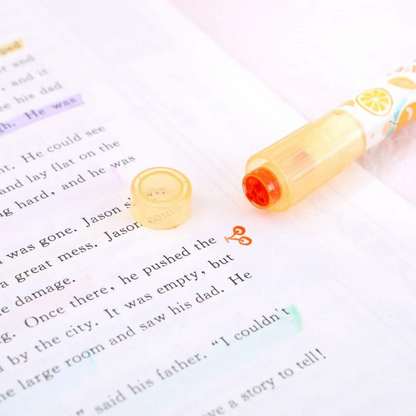 and
, and it
see his dad
th. He was
nt. He could see
and lay flat on the
ng hard, and he was
was gone. Jason
a great mess. Jason
e damage.
g. Once there, he pushed the
l by the city. It was empty, but
e large room and saw his dad. He
," said his father. "I couldn't
ve a story to tell!